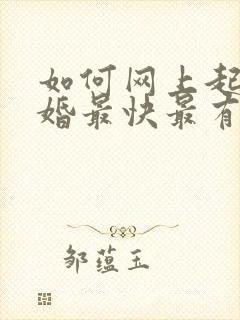 如何网上起
婚最快最有
邹蕴玉